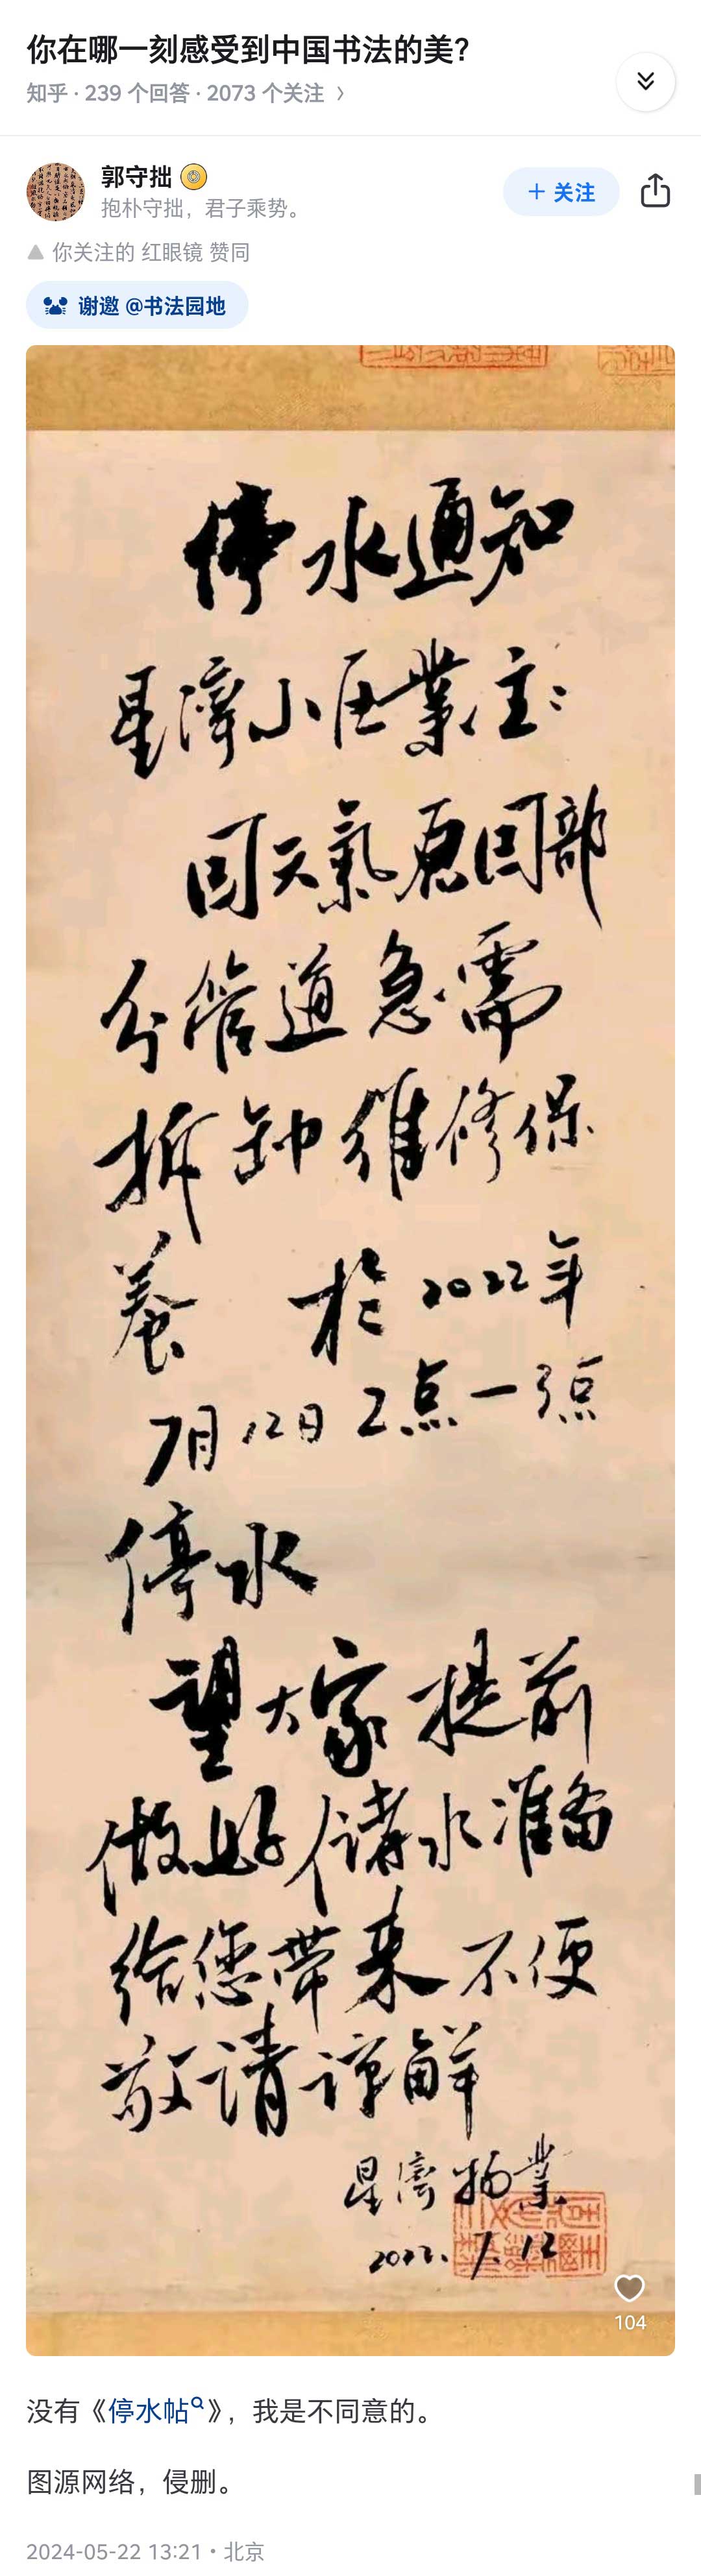 你在哪一刻感受到中国书法的美?
知乎 · 239 个回答 · 2073 个关注 >
郭守拙
抱朴守拙，君子乘势。
+ 关注
你关注的 红眼镜 赞同
谢邀 @书法园地
停水通知
星濟小区業主:
因天氣原因部
分管道急需
拆卸維修保
養 於2022年
7月12日2点一3点
停水
望大家提前
做好儲水準备
给您带来不便
敬请谅解
星濟物業
2022.7.12
104
没有《停水帖》，我是不同意的。
图源网络，侵删。
2024-05-22 13:21 · 北京